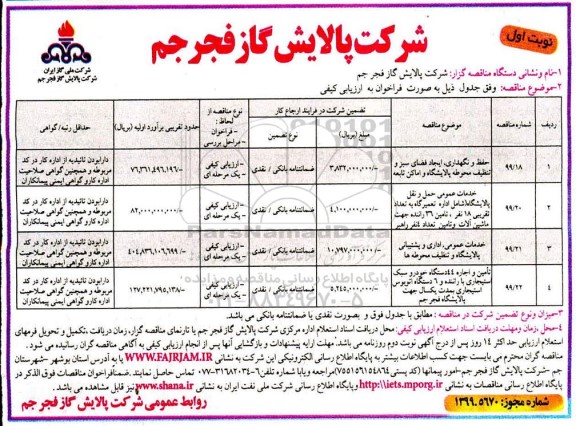 نوبت اول
شرکت پالایش گاز فجر جم
شرکت ملی گاز ایران
شرکت پالایش گاز فجر جم
۱-نام ونشانی دستگاه مناقصه گزار: شرکت پالایش گاز فجر جم
۲-موضوع مناقصه: وفق جدول ذیل به صورت فراخوان به ارزیابی کیفی
ردیف
شماره مناقصه
موضوع مناقصه
تضمین شرکت در فرایند ارجاع کار
مبلغ (بریال)
نوع تضمین
نوع مناقصه از لحاظ:
- فراخوان
- مراحل بررسی
حدود تقریبی برآورد اولیه (بریال)
حداقل رتبه/گواهی
۱
۹۹/۱۸
حفظ و نگهداری، ایجاد فضای سبز و تنظیف محوطه پالایشگاه و اماکن تابعه
۳,۸۳۲,۰۰۰,۰۰۰/-
ضمانتنامه بانکی / نقدی
- ارزیابی کیفی
- یک مرحله ای
۷۶,۳۶۱,۴۹۶,۱۹۶/-
دارابودن تائیدیه از اداره کار در کد مربوطه و همچنین گواهی صلاحیت اداره کارو گواهی ایمنی پیمانکاران
۲
۹۹/۲۰
خدمات عمومی حمل و نقل پالایشگاه(شامل اداره تعمیرگاه به تعداد تقریبی ۱۸ نفر ، تامین ۳۶ راننده جهت ماشین آلات وتامین تعداد ۶نفر راهبر
۴,۱۰۰,۰۰۰,۰۰۰/-
ضمانتنامه بانکی / نقدی
- ارزیابی کیفی
- یک مرحله ای
۸۲,۰۰۰,۰۰۰,۰۰۰/-
دارابودن تائیدیه از اداره کار در کد مربوطه و همچنین گواهی صلاحیت اداره کارو گواهی ایمنی پیمانکاران
۳
۹۹/۲۱
خدمات عمومی، اداری و پشتیبانی پالایشگاه و تنظیف محوطه ها
۱۰,۷۹۷,۰۰۰,۰۰۰/-
ضمانتنامه بانکی / نقدی
- ارزیابی کیفی
- یک مرحله ای
۴۰۴,۸۳۶,۱۰۶,۶۹۹/-
دارابودن تائیدیه از اداره کار در کد مربوطه و همچنین گواهی صلاحیت اداره کارو گواهی ایمنی پیمانکاران
۴
۹۹/۲۲
تأمین و اجاره ۴۴دستگاه خودرو سبک استیجاری با راننده و ۶ دستگاه اتوبوس استیجاری بمدت یکسال جهت پالایشگاه فجر جم
۵,۲۴۵,۰۰۰,۰۰۰/-
ضمانتنامه بانکی / نقدی
- ارزیابی کیفی
- یک مرحله ای
۱۲۷,۲۲۱,۷۹۵,۱۳۸/-
دارابودن تائیدیه از اداره کار در کد مربوطه و همچنین گواهی صلاحیت اداره کارو گواهی ایمنی پیمانکاران
ParsNamadData
پایگاه اطلاع رسانی مناقصه و مزایده
۰۲۱-۸۸۳۴۹۶۷۰-۵
۳-میزان ونوع تضمین شرکت در مناقصه : مطابق با جدول فوق و بصورت نقدی یا ضمانتنامه بانکی می باشد.
۴-محل ،زمان ومهلت دریافت اسناد استعلام ارزیابی کیفی: محل دریافت اسناد استعلام اداره مرکزی شرکت پالایش گاز فجر جم یا تارنمای مناقصه گزار، زمان دریافت ،تکمیل و تحویل فرمهای استعلام ارزیابی حداکثر ۱۴ روز پس از درج آگهی نوبت دوم روزنامه می باشد. مهلت ارایه پیشنهادات و بازگشایی آنها پس از انجام ارزیابی کیفی به آگاهی مناقصه گران رسانیده می شود .
مناقصه گران محترم می بایست جهت کسب اطلاعات بیشتر به پایگاه اطلاع رسانی الکترونیکی این شرکت به نشانی WWW.FAJRJAM.IR یا به آدرس استان بوشهر -شهرستان جم -شرکت پالایش گاز فجر جم-امور پیمانها (کد پستی ۷۵۵۱۵۶۱۵۴۸۶۴)مراجعه ویابا شماره تلفن۶-۰۷۷-۳۱۶۸۲۰۳۴ تماس حاصل نمایند .ضمنافراخوان مناقصات فوق الذکر در پایگاه اطلاع رسانی مناقصات به نشانی http\\\iets.mporg.ir وپایگاه اطلاع رسانی شرکت ملی نفت ایران به نشانی www.shana.ir نیز قابل مشاهده می باشد .
روابط عمومی شرکت پالایش گاز فجر جم
شماره مجوز: ۱۳۹۹.۵۶۷۰